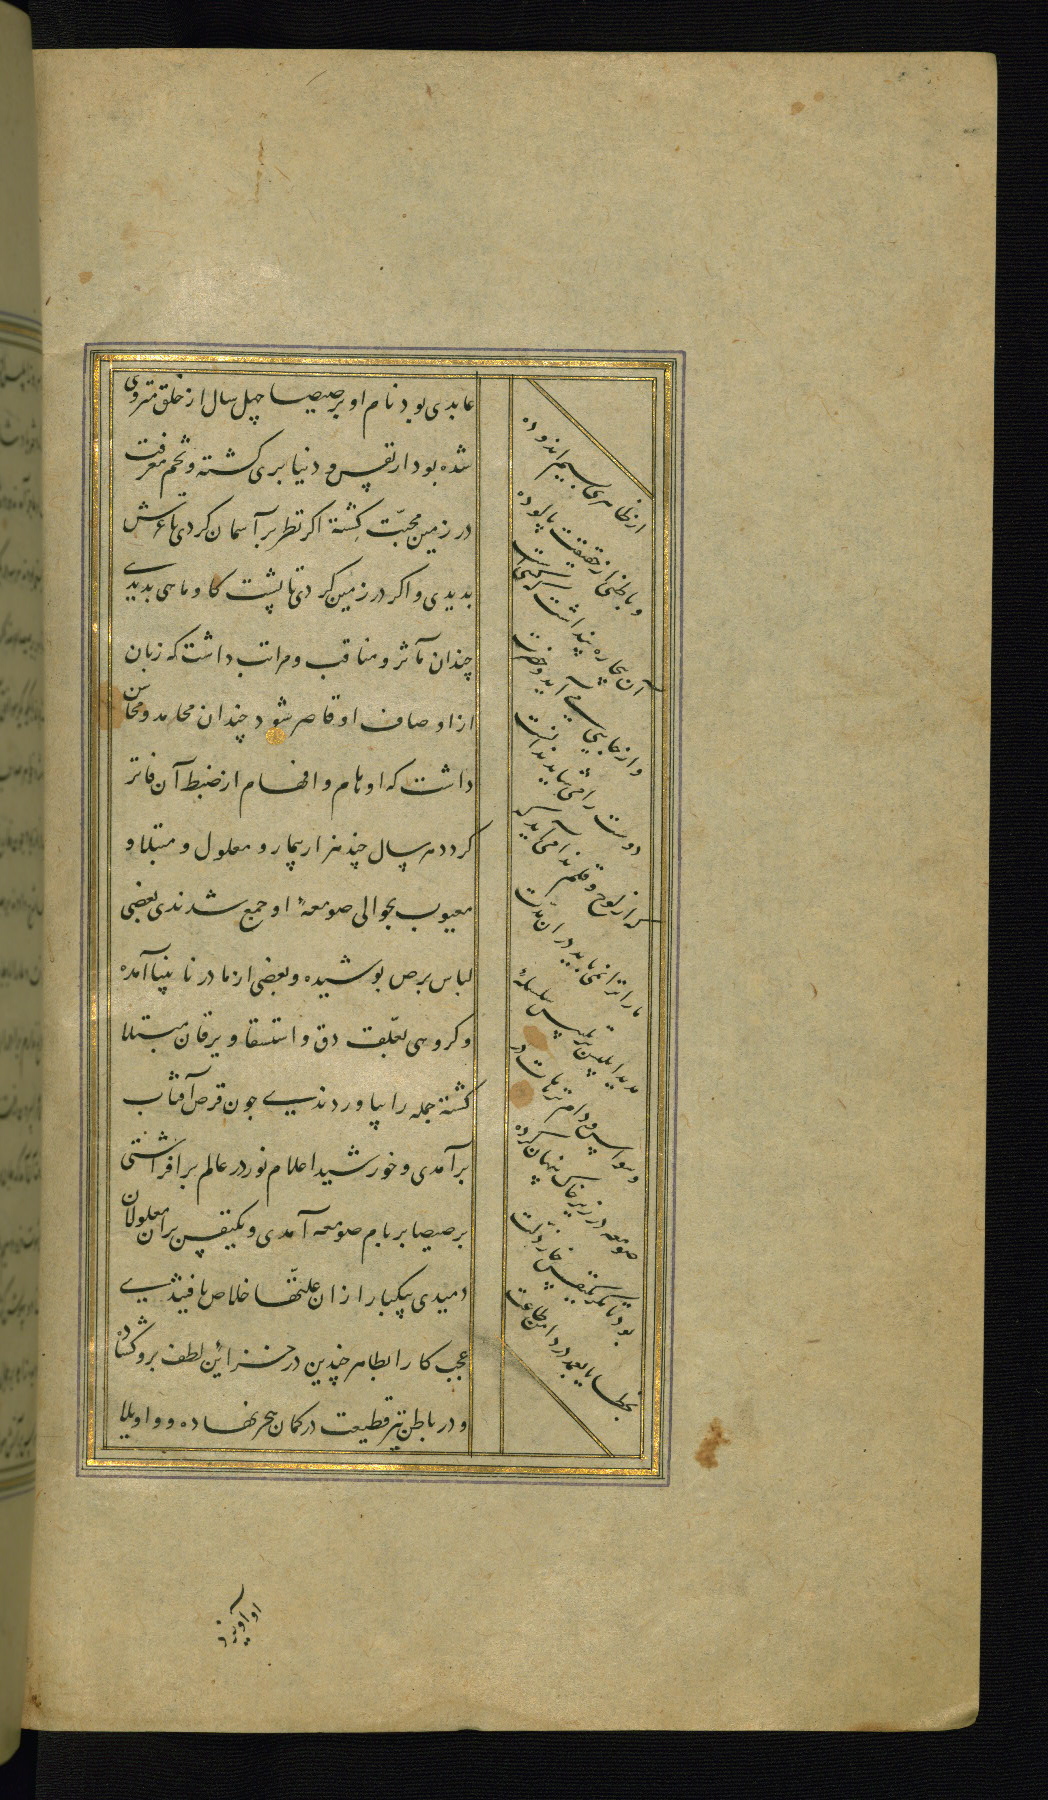 عابدی بود نام او برصیصا چهل سال از خلق متروی
شده بود از نفس و دنیا بری کشته و تخم معرفت
در زمین محبّت کشته اکر نظر بر آسمان کردی تا عرش
بدیدی و اکر در زمین کردی تا پشت کاو ماهی بدیدی
چندان مآثر و مناقب و مراتب داشت که زبان
از اوصاف او قاصر شود چندان محامد و محاسن
داشت که اوهام و افهام از ضبط آن فاتر
کردد هر سال چند هزار بیمار و معلول و مبتلا و
معیوب بحوالی صومعهٔ او جمع شدندی بعضی
لباس برص پوشیده و بعضی از مادر نابینا آمده
و کروهی بعلّت دق و استسقا و یرقان مبتلا
کشته جمله را بیاوردندی جون قرص آفتاب
برآمدی و خورشید اعلام نور در عالم برافراشتی
برصیصا بر بام صومعه آمدی و یکنفس بر آن معلولان
دمیدی بیکبار از ان علتّها خلاص یافتندی
عجب کار را بظاهر چندین در خزائن لطف برو کشاده
و در باطن تیر قطیعت در کمان هجر نهاده و واویلا
از ظاهری بسیم اندوده
و باطنی از حقیقت پالوده
آن بیچاره پنداشت که کسی است
و از جایی می آید و حضرت
دوست را می شاید ندانست
که از لوح و قلم ندا می آید که
ما را ترا نمی باید در ان مدّت
مدید ابلیس پر تلبیس سلسلهٔ
وسواس و دام ترهات در
صومعه در زیر خاک پنهان کرده
بود تا مکر یکنفس خار زلت
بخطا یا بعمد در دامن طاعت
او آویزد